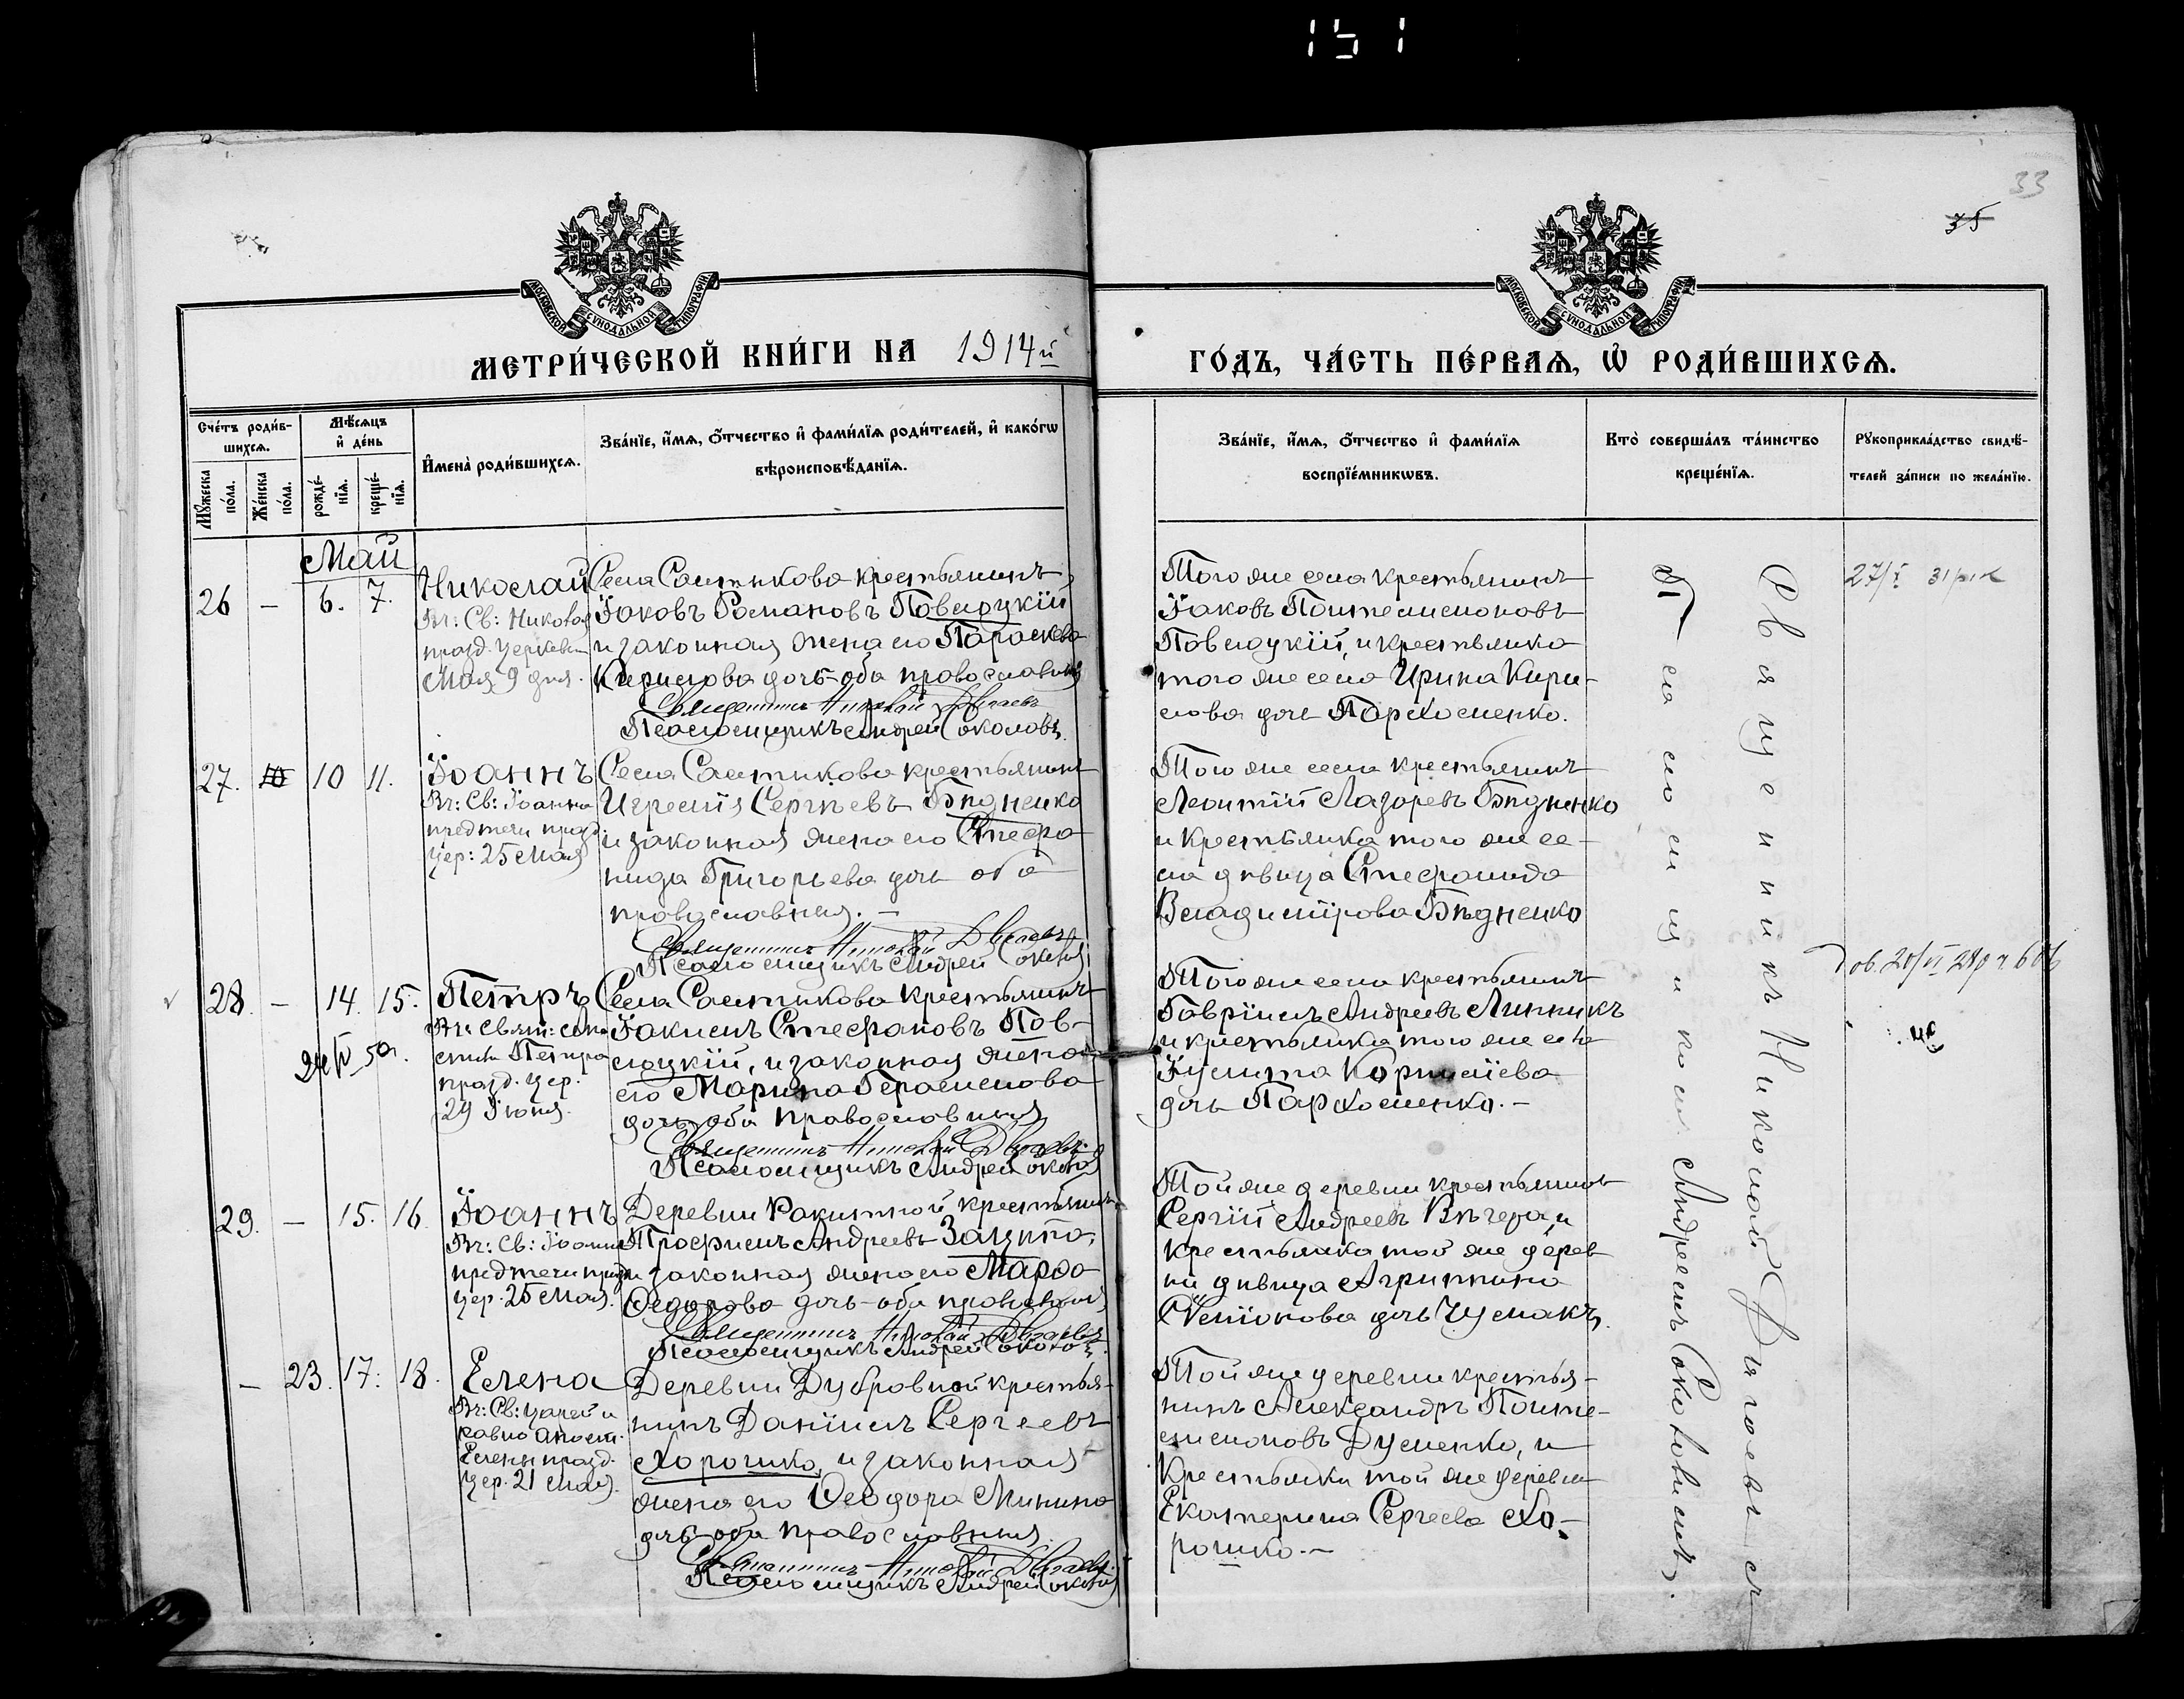 151
33
35
МОСКОВСКОЙ СѴНОДАЛЬНОЙ ТИПОГРАФІИ
МОСКОВСКОЙ СѴНОДАЛЬНОЙ ТИПОГРАФІИ
МЕТРИ́ЧЕСКОЙ КНИ́ГИ НА 1914й
ГО́ДЪ, ЧА́СТЬ ПЕ́РВАѦ, Ѡ҆ РОДИ́ВШИХСѦ.
Сче́тъ роди́в-
шихсѧ.
Мꙋ́жеска по́ла.
Же́нска по́ла.
Мѣ́сѧцъ и҆ де́нь
рожде́-
нїѧ.
креще́-
нїѧ.
И҆мена̀ роди́вшихсѧ.
Зва́нїе, и҆́мѧ, ѻ҆́тчество и҆ фами́лїѧ роди́телей, и҆ како́гѡ
вѣроисповѣ́данїѧ.
Зва́нїе, и҆́мѧ, ѻ҆́тчество и҆ фами́лїѧ
воспрїе́мникѡвъ.
Кто̀ соверша́лъ та́инство
креще́нїѧ.
Рꙋкоприкла́дство свидѣ́-
телей за́писи по жела́нїю.
Май
26 — 6. 7.
Николай
Въ: Св: Николая
празд. церковью
Мая 9 дня.
Села Салтыкова крестьянинъ
Іаковъ Романовъ Повлоцкій
и законная жена его Параскева
Кирилова дочь-оба православныя
Священникъ Николай
Псаломщикъ Андрей Соколовъ.
Того же села крестьянинъ
Іаковъ Пантелимоновъ
Повлоцкій, и крестьянка
того же села Ирина Кири-
лова дочь Пархоменко.
27. 10 11.
Іоаннъ
Въ: Св: Іоанна
предтечи празд.
цер: 25 Мая
Села Салтыкова крестьянинъ
Сергѣевъ Бѣдненко
и законная жена его Стефа-
нида Григорьева дочь оба
православныя. —
Священникъ Николай
Псаломщикъ Андрей Соколовъ
Того же села крестьянинъ
Леонтій Лазаревъ Бѣдненко
и крестьянка того же се-
ла дѣвица Стефанида
Владимірова Бѣдненко
28. — 14. 15.
Петръ
Петра
празд. цер.
29 Іюня.
Села Салтыкова крестьянинъ
Іакимъ Стефановъ Пов-
лоцкій, и законная жена
его Марина Герасимова
дочь-оба православныя
Священникъ Николай
Псаломщикъ Андрей Соколовъ
Того же села крестьянинъ
Гавріилъ Андреевъ Линникъ
и крестьянка того же села
Іулита Корниліева
дочь Пархоменко. —
29. — 15. 16.
Іоаннъ
Въ: Св: Іоанна
предтечи празд
цер. 25 Мая.
Деревни Ракитной крестьянинъ
Трофимъ Андреевъ
и законная жена его Марѳа
Ѳедорова дочь-оба православныя
Священникъ Николай
Псаломщикъ Андрей Соколовъ.
Той же деревни крестьянинъ
Сергій Андреевъ Вечера, и
крестьянка той же дерев
ни дѣвица Агриппина
Симіонова дочь Чумакъ.
— 23. 17. 18.
Елена
Въ: Св: Царей и
равно Апост.
Елены празд.
цер. 21 Мая.
Деревни Дубровной крестья-
нинъ Даніилъ Сергеевъ
Хорошко, и законная
жена его Ѳеодора Минина
дочь-оба православныя.
Священникъ Николай
Псаломщикъ Андрей Соколовъ
Той же деревни крестья-
нинъ Александръ Панте-
лимоновъ Думенко, и
крестьянка той же деревни
Екатерина Сергеева Хо-
рошко. —
Священникъ Николай
Псаломщикомъ Андреемъ Соколовымъ.